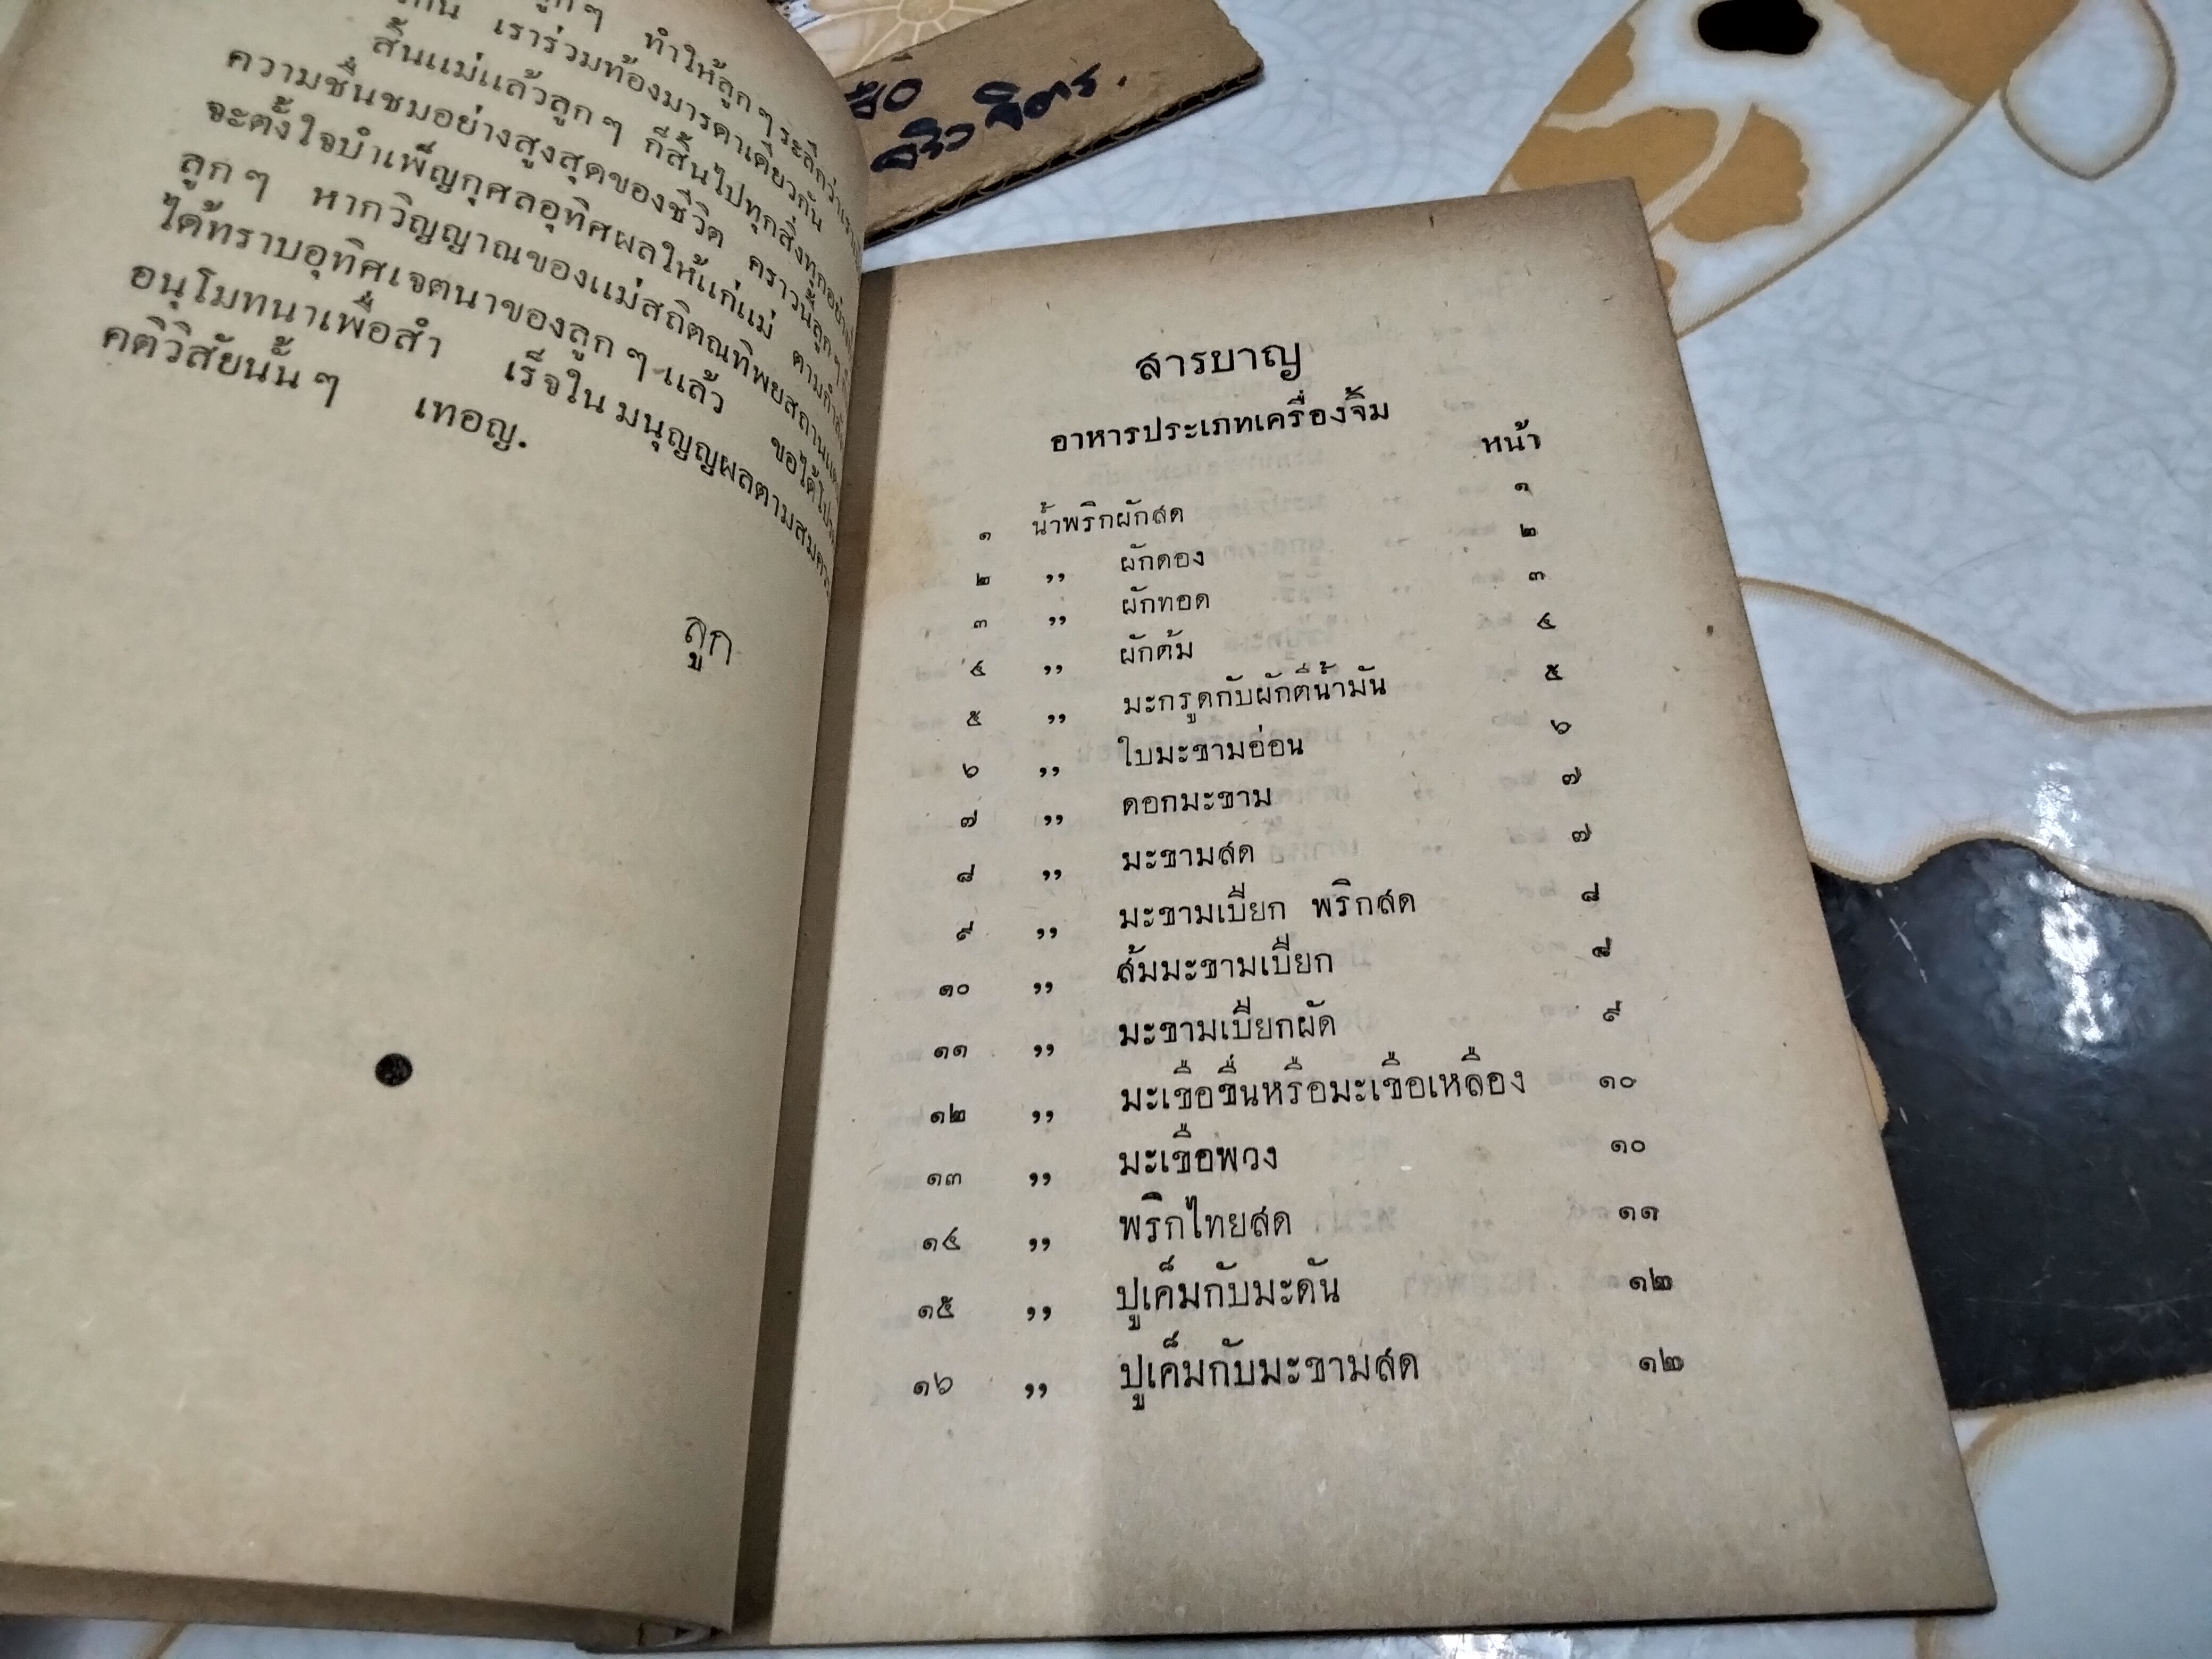 ลูก ๆ ทำให้ลูก ๆ ระลึกว่าเรา
เราร่วมท้องมารดาเดียวกัน
สิ้นแม่แล้วลูก ๆ ก็สิ้นไปทุกสิ่งทุกอย่าง
ความชื่นชมอย่างสูงสุดของชีวิต คราวนี้ลูก ๆ
จะตั้งใจบำเพ็ญกุศลอุทิศผลให้แก่แม่ ตามกำลัง
ลูก ๆ หากวิญญาณของแม่สถิตณทิพยสถาน
ได้ทราบอุทิศเจตนาของลูก ๆ แล้ว ขอได้โปรด
อนุโมทนาเพื่อสำ เร็จใน มนุญญผลตามสมควร
คติวิสัยนั้น ๆ เทอญ.
ลูก
จิว จิตร.
สารบาญ
อาหารประเภทเครื่องจิ้ม
หน้า
๑ น้ำพริกผักสด ๑
๒ ,, ผักดอง ๒
๓ ,, ผักทอด ๓
๔ ,, ผักต้ม ๔
๕ ,, มะกรูดกับผักตีน้ำมัน ๕
๖ ,, ใบมะขามอ่อน ๖
๗ ,, ดอกมะขาม ๗
๘ ,, มะขามสด ๗
๙ ,, มะขามเปียก พริกสด ๘
๑๐ ,, ส้มมะขามเปียก ๘
๑๑ ,, มะขามเปียกผัด ๙
๑๒ ,, มะเขือขื่นหรือมะเขือเหลือง ๑๐
๑๓ ,, มะเขือพวง ๑๐
๑๔ ,, พริกไทยสด ๑๑
๑๕ ,, ปูเค็มกับมะดัน ๑๒
๑๖ ,, ปูเค็มกับมะขามสด ๑๒